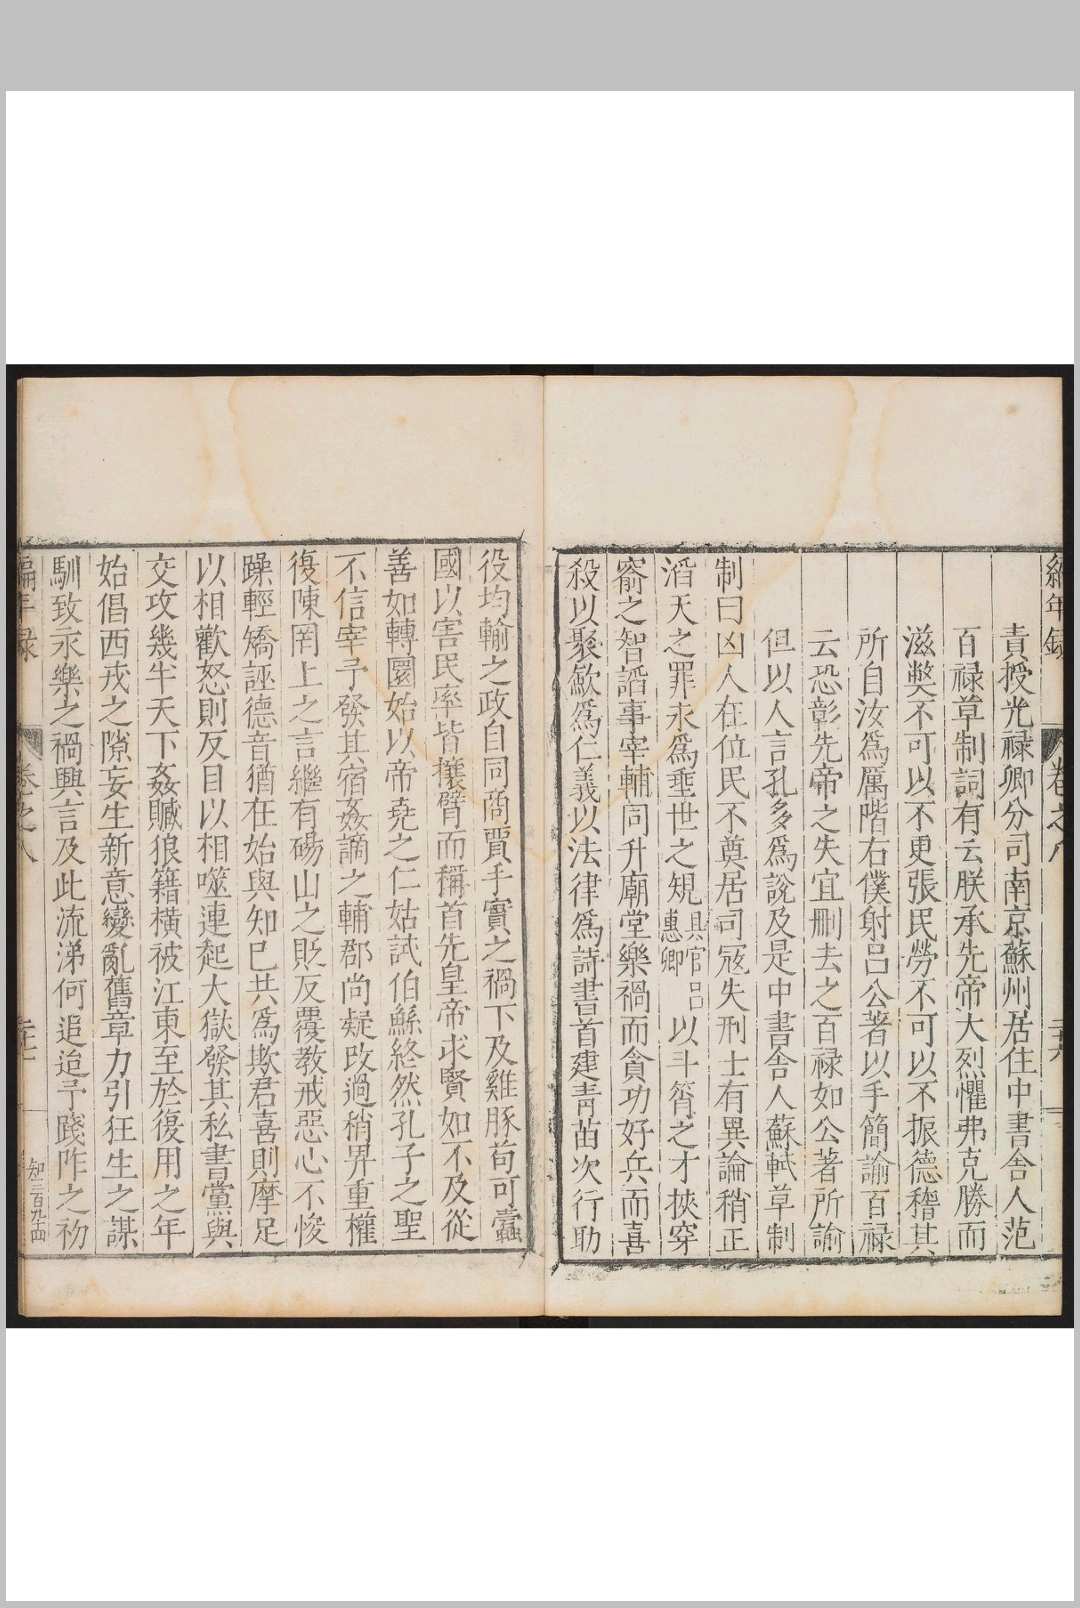 編年錄 卷之八 二十六
責授光禄卿分司南京蘇州居住中書舍人范
百禄草制詞有云朕承先帝大烈懼弗克勝而
滋獘不可以不更張民勞不可以不振德稽其
所自汝爲厲階右僕射吕公著以手簡諭百禄
云恐彰先帝之失宜刪去之百禄如公著所諭
但以人言孔多爲說及是中書舍人蘇軾草制
制曰凶人在位民不奠居司寇失刑士有異論稍正
滔天之罪永爲埀世之規具官吕惠卿以斗筲之才挾穿
窬之智謟事宰輔同升廟堂樂禍而貪功好兵而喜
殺以聚歛爲仁義以法律爲詩書首建青苗次行助
役均輸之政自同商賈手實之禍下及雞豚苟可蠧
國以害民率皆攘臂而稱首先皇帝求賢如不及從
善如轉圜始以帝堯之仁姑試伯鯀終然孔子之聖
不信宰予發其宿姦謫之輔郡尚疑改過稍畀重權
復陳罔上之言繼有碭山之貶反覆教戒惡心不悛
躁輕矯誣德音猶在始與知己共爲欺君喜則摩足
以相歡怒則反目以相噬連起大獄發其私書黨與
交攻幾半天下姦贓狼籍橫被江東至於復用之年
始倡西戎之隙妄生新意變亂舊章力引狂生之謀
馴致永樂之禍興言及此流涕何追迨予踐阼之初
編年録 卷之八